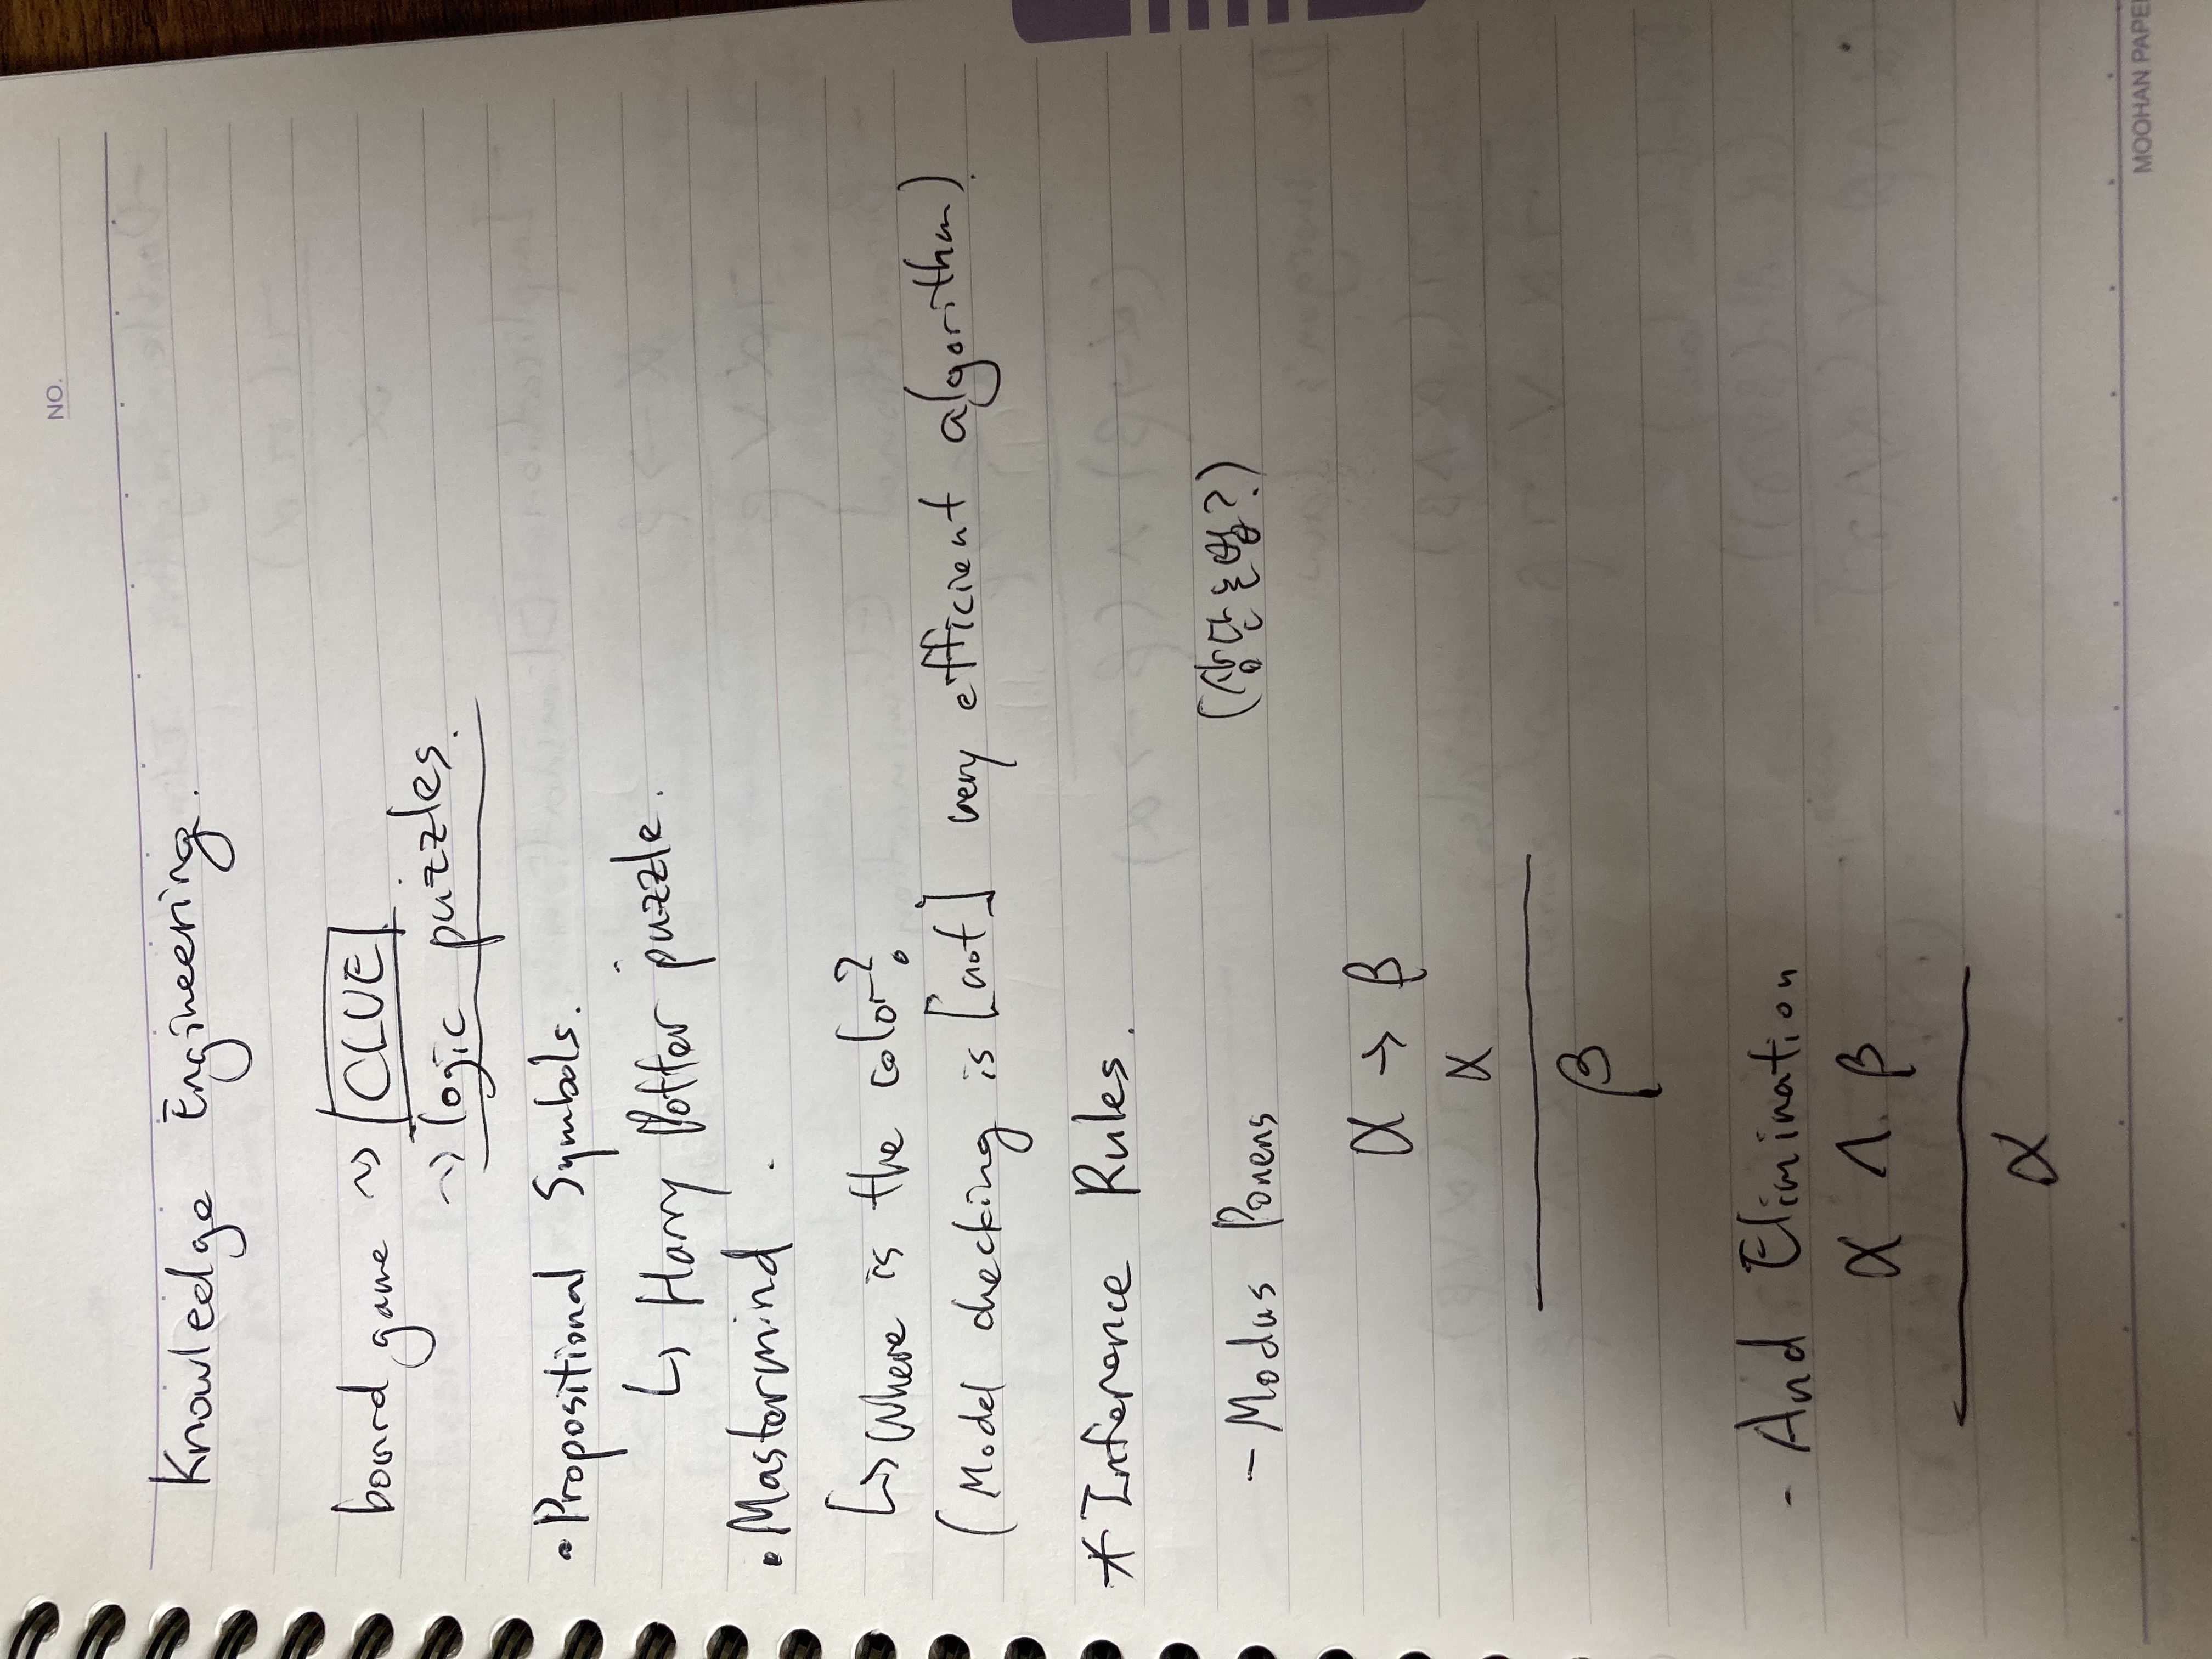 NO.
Knowledge Engineering.
board game ~> CLUE
~> logic puzzles.
• Propositional Symbols.
↳ Harry Potter puzzle.
• Mastermind.
↳ Where is the color?
(Model checking is [not] very efficient algorithm).
* Inference Rules.
- Modus Ponens (삼단논법?)
α → β
α
β
- And Elimination
α ∧ β
α
MOOHAN PAPER